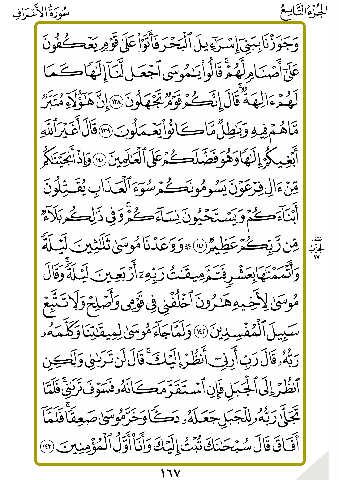 الجزء التاسع
سورة الأعراف
وَجَٰوَزْنَا بِبَنِىٓ إِسْرَٰٓءِيلَ ٱلْبَحْرَ فَأَتَوْا۟ عَلَىٰ قَوْمٍ يَعْكُفُونَ
عَلَىٰٓ أَصْنَامٍ لَّهُمْ ۚ قَالُوا۟ يَٰمُوسَى ٱجْعَل لَّنَآ إِلَٰهًا كَمَا
لَهُمْ ءَالِهَةٌ ۚ قَالَ إِنَّكُمْ قَوْمٌ تَجْهَلُونَ ﴿١٣٨﴾ إِنَّ هَٰٓؤُلَآءِ مُتَبَّرٌ
مَّا هُمْ فِيهِ وَبَٰطِلٌ مَّا كَانُوا۟ يَعْمَلُونَ ﴿١٣٩﴾ قَالَ أَغَيْرَ ٱللَّهِ
أَبْغِيكُمْ إِلَٰهًا وَهُوَ فَضَّلَكُمْ عَلَى ٱلْعَٰلَمِينَ ﴿١٤٠﴾ وَإِذْ أَنجَيْنَٰكُم
مِّنْ ءَالِ فِرْعَوْنَ يَسُومُونَكُمْ سُوٓءَ ٱلْعَذَابِ ۖ يُقَتِّلُونَ
أَبْنَآءَكُمْ وَيَسْتَحْيُونَ نِسَآءَكُمْ ۚ وَفِى ذَٰلِكُم بَلَآءٌ
مِّن رَّبِّكُمْ عَظِيمٌ ﴿١٤١﴾ ۞ وَوَٰعَدْنَا مُوسَىٰ ثَلَٰثِينَ لَيْلَةً
وَأَتْمَمْنَٰهَا بِعَشْرٍ فَتَمَّ مِيقَٰتُ رَبِّهِۦٓ أَرْبَعِينَ لَيْلَةً ۚ وَقَالَ
مُوسَىٰ لِأَخِيهِ هَٰرُونَ ٱخْلُفْنِى فِى قَوْمِى وَأَصْلِحْ وَلَا تَتَّبِعْ
سَبِيلَ ٱلْمُفْسِدِينَ ﴿١٤٢﴾ وَلَمَّا جَآءَ مُوسَىٰ لِمِيقَٰتِنَا وَكَلَّمَهُۥ
رَبُّهُۥ قَالَ رَبِّ أَرِنِىٓ أَنظُرْ إِلَيْكَ ۚ قَالَ لَن تَرَىٰنِى وَلَٰكِنِ
ٱنظُرْ إِلَى ٱلْجَبَلِ فَإِنِ ٱسْتَقَرَّ مَكَانَهُۥ فَسَوْفَ تَرَىٰنِى ۚ فَلَمَّا
تَجَلَّىٰ رَبُّهُۥ لِلْجَبَلِ جَعَلَهُۥ دَكًّا وَخَرَّ مُوسَىٰ صَعِقًا ۚ فَلَمَّآ
أَفَاقَ قَالَ سُبْحَٰنَكَ تُبْتُ إِلَيْكَ وَأَنَا۠ أَوَّلُ ٱلْمُؤْمِنِينَ ﴿١٤٣﴾
١٦٧